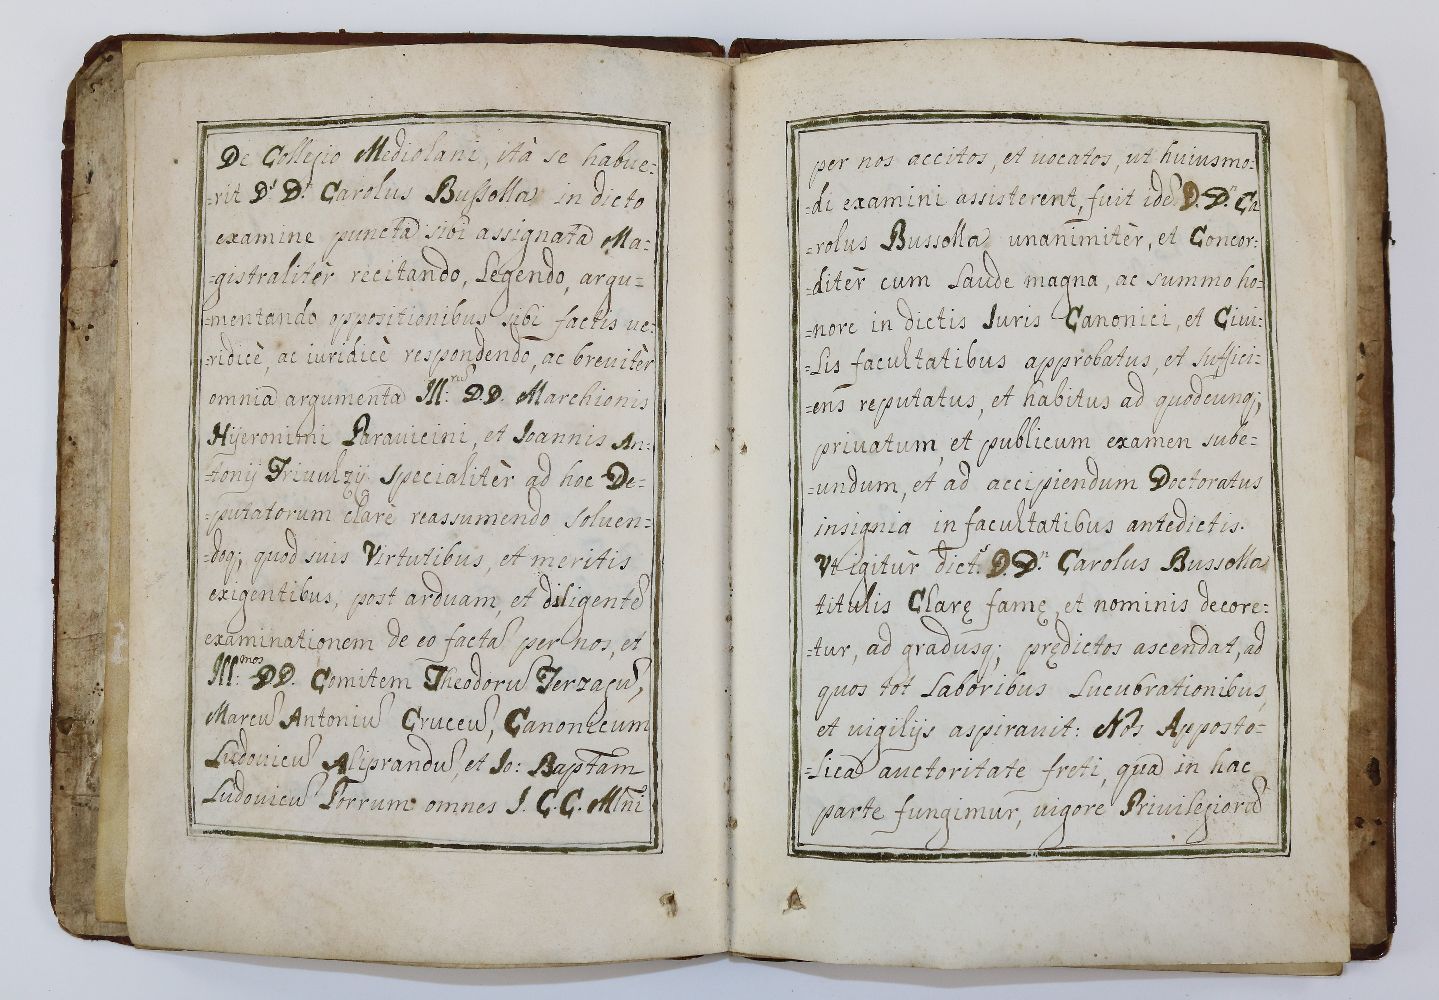 De Collegio Mediolani, ità se habue=
=rit D.^r D.^r Carolus Bussolla in dicto
examine puncta sibi assignata Ma=
=gistralitèr recitando, Legendo, argu=
=mentando oppositionibus sibi factis ue=
=ridicè, ac iuridicè respondendo, ac breuitèr
omnia argumenta Ill:^rum DD. Marchionis
Hijeronimi Parauicini, et Ioannis An=
=tonij Triuulzij specialitèr ad hoc De=
=putatorum clarè reassumendo soluen=
=doq; quod suis Virtutibus, et meritis
exigentibus, post arduam, et diligente͂
examinationem de eo facta͂ per nos, et
Ill:^mos DD. Comitem Theodoru͂ Terzagu͂,
Marcu͂ Antoniu͂ Cruceu͂, Canonicum
Ludouicu͂ Aliprandu͂, et Io: Baptam
Ludouicu͂ Porrum omnes I. C. C. Mlñi
per nos accitos, et uocatos, ut huiusmo=
=di examini assisterent, fuit ide͂ D. D.^n Ca
=rolus Bussolla unanimitèr, et Concor=
=ditèr cum Laude magna, ac summo ho=
=nore in dictis Iuris Canonici, et Ciui=
=Lis facultatibus approbatus, et suffici=
=ens reputatus, et habitus ad quodcunq;
priuatum, et publicum examen sube=
=undum, et ad accipiendum Doctoratus
insignia in facultatibus antedictis.
Vt igitùr dict.^s D. D.^n Carolus Bussolla
titulis Clarę famę, et nominis decore=
=tur, ad gradusq; prędictos ascendat, ad
quos tot Laboribus Lucubrationibus,
et uigilijs aspirauit: Nos Apposto=
=Lica auctoritate freti, qua in hac
parte fungimur, uigore Priuilegioru͂